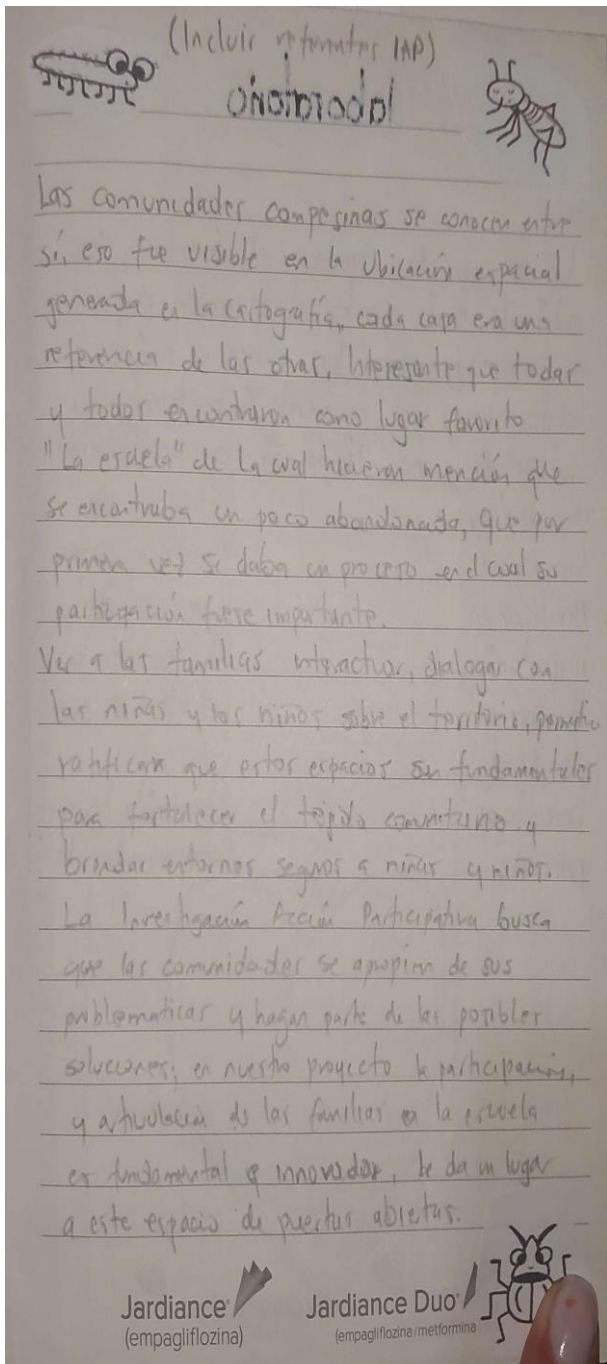 (Incluir referentes IAP)
laboratorio
Las comunidades campesinas se conocen entre
sí, eso fue visible en la ubicación espacial
generada en la cartografía, cada casa era una
referencia de las otras, Interesante que todas
y todos encontraron como lugar favorito
"La escuela" de la cual hicieron mención que
se encontraba un poco abandonada, que por
primera vez se daba un proceso en el cual su
participación fuese importante.
Ver a las familias interactuar, dialogar con
las niñas y los niños sobre el territorio, permite
ratificar que estos espacios son fundamentales
para fortalecer el tejido comunitario y
brindar entornos seguros a niñas y niños.
La Investigación Acción Participativa busca
que las comunidades se apropien de sus
problematicas y hagan parte de las posibles
soluciones; en nuestro proyecto la participación,
y articulación de las familias a la escuela
es fundamental e innovador, le da un lugar
a este espacio de puertas abiertas.
Jardiance®
(empagliflozina)
Jardiance Duo®
(empagliflozina/metformina